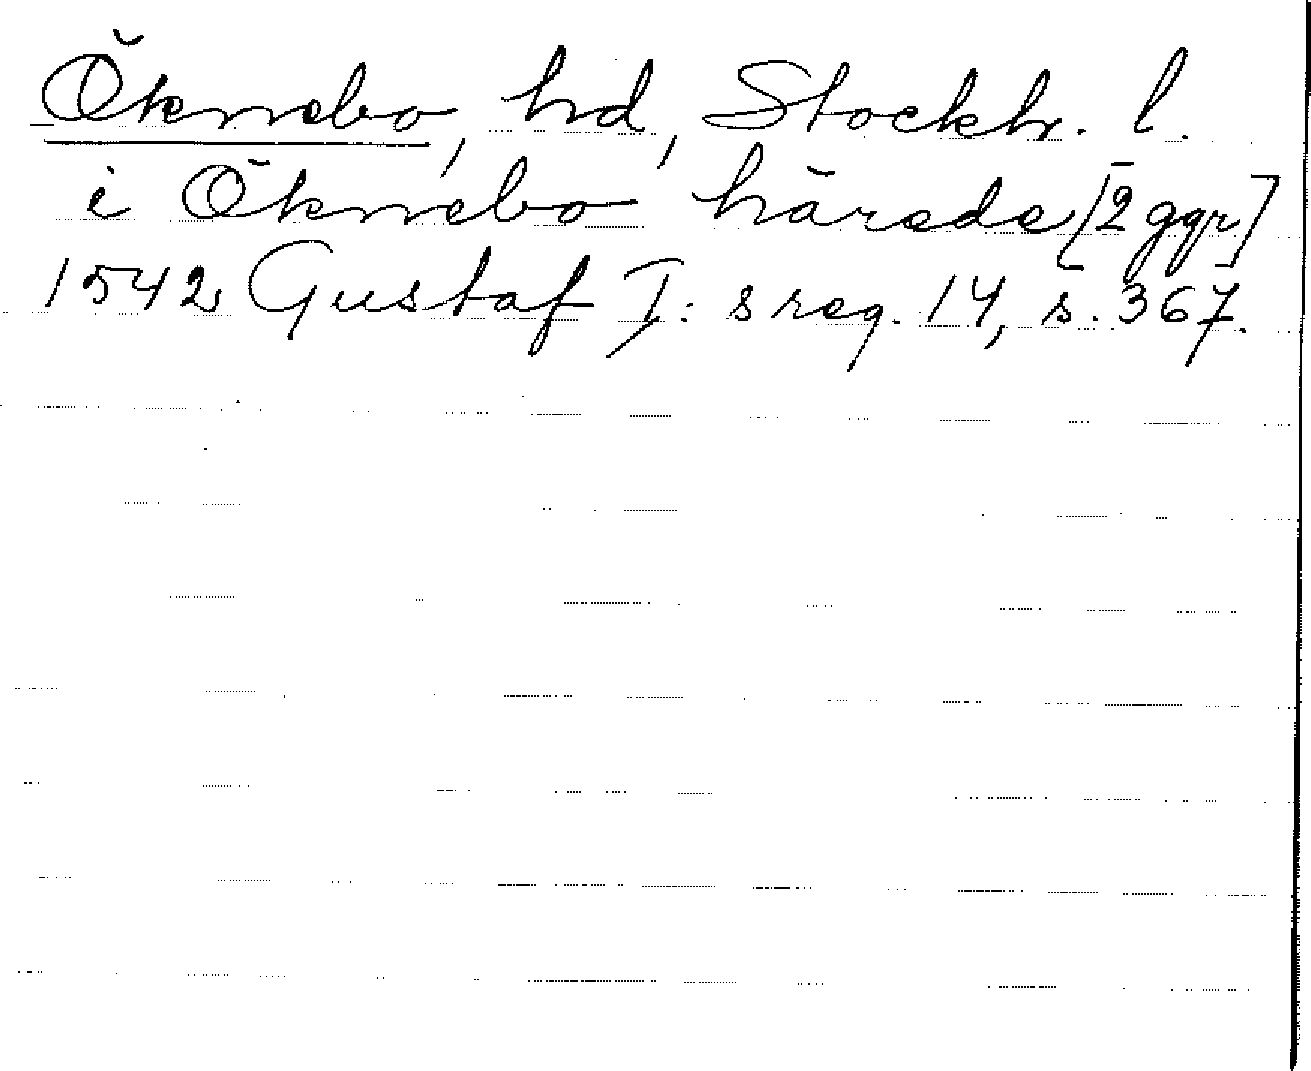 Öknebo, hd, Stockh. l.
i Öknebo härede [2 ggr]
1542 Gustaf I: s reg. 14, s. 367.